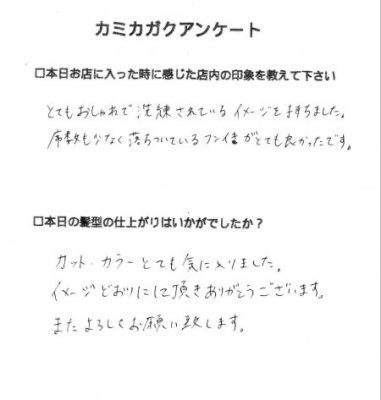 カミカガクアンケート
□本日お店に入った時に感じた店内の印象を教えて下さい
とてもおしゃれで洗練されているイメージを持ちました。
席数も少なく落ちついているフンイ気がとても良かったです。
□本日の髪型の仕上がりはいかがでしたか？
カット・カラーとても気に入りました。
イメージどおりにして頂きありがとうございます。
またよろしくお願い致します。